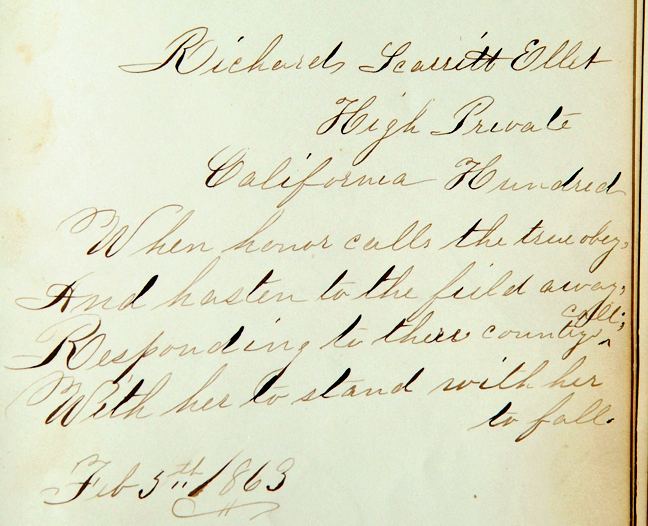 Richards Scarritt Ellet
High Private
California Hundred
When honor calls the true obey,
And hasten to the field away,
Responding to their country's call;
With her to stand with her
to fall.
Feb 5th 1863